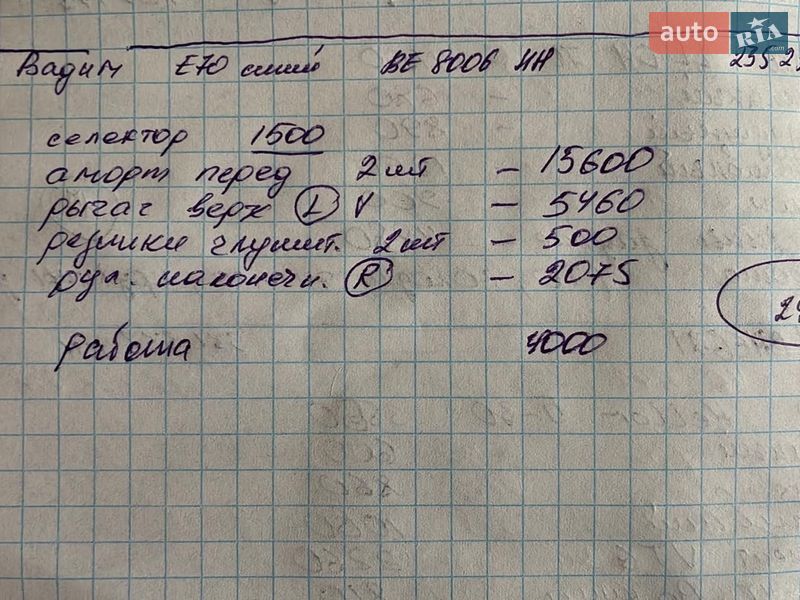 auto RIA .com
Вадим E70 синий BE 8006 HH 235
селектор 1500
аморт перед 2шт - 15600
рычаг верх L V - 5460
резинки глушит. 2шт - 500
рул. наконечн. R - 2075
работа 4000